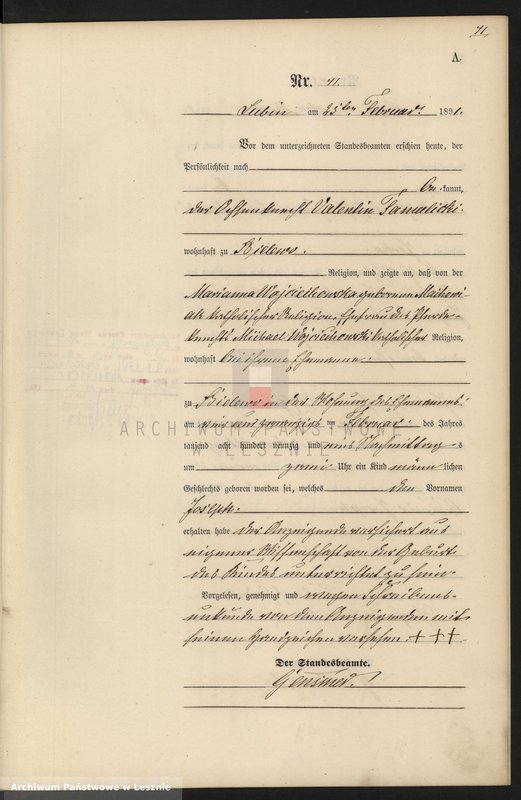 71.
A.
Nr. 71.
Lubin am 25ten Februar 1891.
Vor dem unterzeichneten Standesbeamten erschien heute, der
Persönlichkeit nach
be kannt,
der Ochsenknecht Valentin
wohnhaft zu Bielewo.
Religion, und zeigte an, daß von der
Marianna Wojciechowska geborenen
katholischer Religion, Ehefrau des Pferde-
knechts Michael Wojciechowski katholischer Religion,
wohnhaft bei ihrem Ehemanne
zu Bielewo in der Wohnung des Ehemannes
am ein und zwanzigsten Februar des Jahres
tausend acht hundert neunzig und eins Nachmittags
um zwei Uhr ein Kind männ lichen
Geschlechts geboren worden sei, welches den Vornamen
Joseph
erhalten habe der Anzeigende versichert aus
eigener Wissenschaft von der Geburt
des Kindes unterrichtet zu sein.
Vorgelesen, genehmigt und wegen Schreibens-
unkunde von dem Anzeigenden mit
seinem Handzeichen versehen. +++
Der Standesbeamte.
ARCHIWUM PAŃSTWOWE
LESZNIE
Archiwum Państwowe w Lesznie